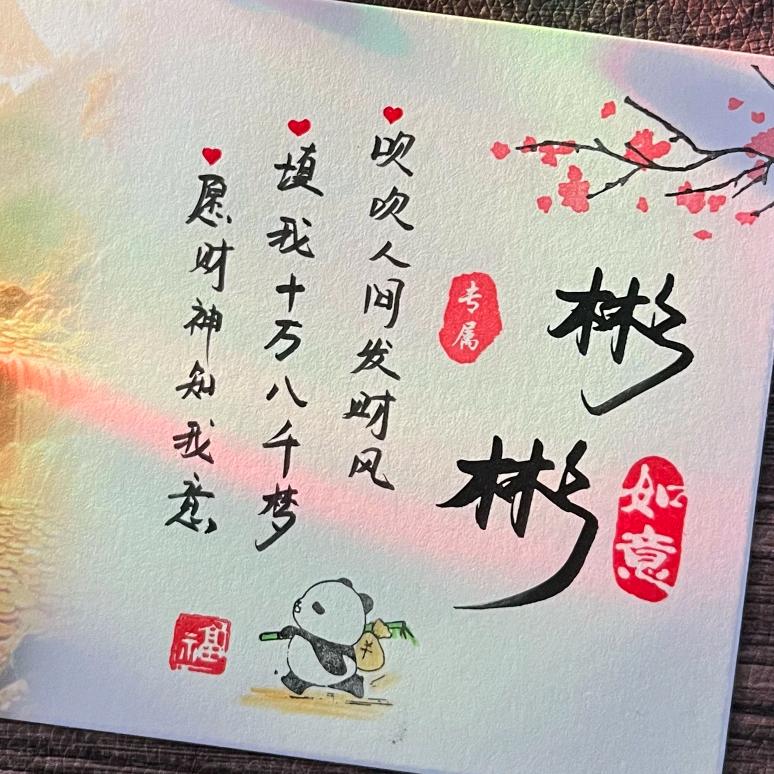 彬彬
如意
专属
吹吹人间发财风
填我十万八千梦
愿财神知我意
福